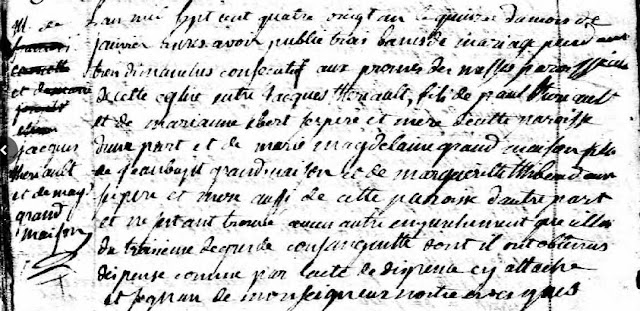 M. de
et de
jacques
theriault
et de mag.
grand
maison
L'an mil sept cent quatre vingt un le quinze du mois de
janvier apres avoir publié trois bans de mariage pendant
trois dimanches consecutif aux prones des messes paroissiales
de cette eglise entre jacques theriault, fils de paul theriault
et de marianne ebert ses pere et mere de cette paroisse
d'une part et de marie magdelaine grand maison fille
de jeanbapt grandmaison et de marguerite thibaudeau
ses pere et mere aussi de cette paroisse d'autre part
et ne s'etant trouvé aucun autre enpechement que celui
du troisieme degré de consanguité dont ils ont obtenus
dispense comme par l'acte de dispense cy attaché
et signé de monseigneur nostre eveque